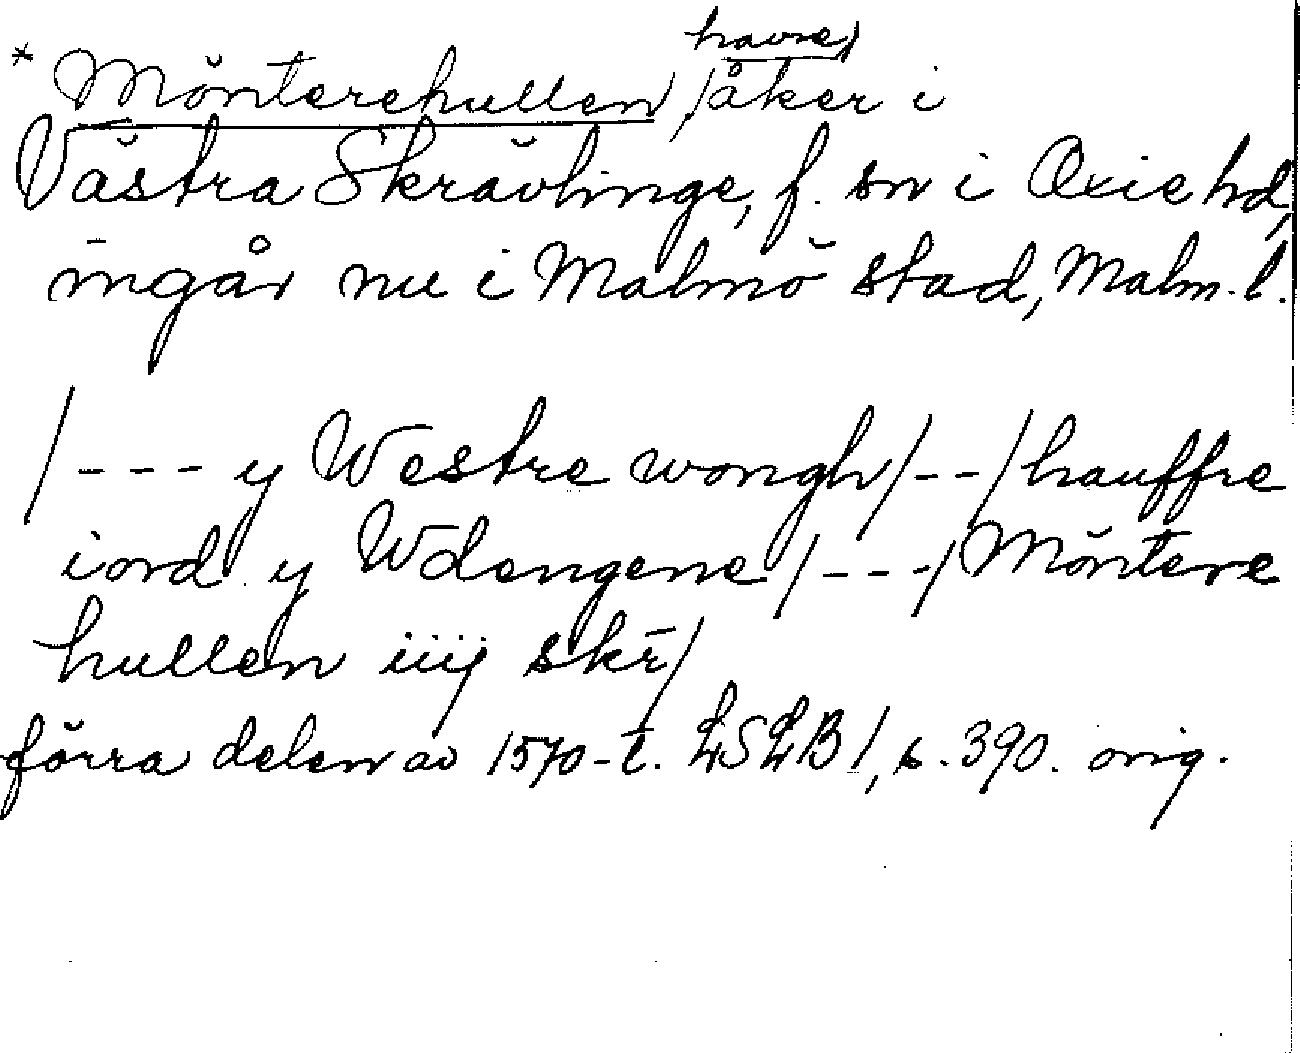 * Mönterehullen, /havre/åker i
Västra Skrävlinge, f. sn i Oxie hd,
ingår nu i Malmö stad, Malm. l.
/--- y Westre wongh/--/hauffre
iord y Wdengene/---/Möntere
hullen iiij skr̄/
förra delen av 1570-t. LSLB 1, s. 390. orig.